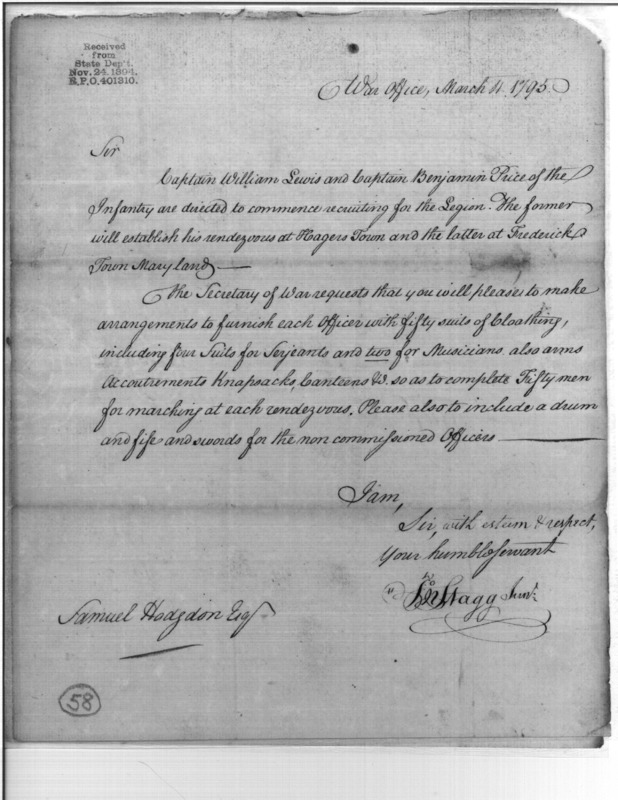 Received
from
State Dep't.
Nov. 24. 1894.
R.P.O. 401310.
War Office, March 4. 1795.
Sir
Captain William Lewis and Captain Benjamin Price of the
Infantry are directed to commence recruiting for the Legion. The former
will establish his rendezvous at Hagers Town and the latter at Frederick
Town Maryland —
The Secretary of War requests that you will please to make
arrangements to furnish each Officer with fifty suits of Cloathing,
including four Suits for Serjeants and two for Musicians also arms
Accoutrements Knapsacks, Canteens &c. so as to complete Fifty men
for marching at each rendezvous. Please also to include a drum
and fife and swords for the non commissioned Officers —
I am,
Sir, with esteem & respect,
Your humble servant
Jno Stagg Junr
Samuel Hodgdon Esqr
58